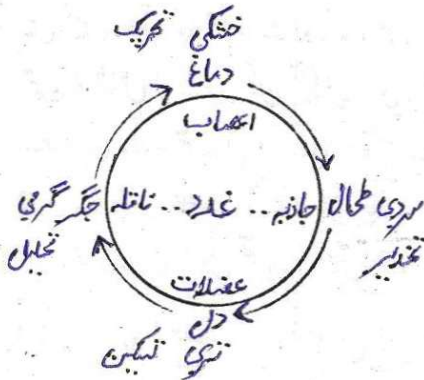 خشکی تحریک
دماغ
اعصاب
سردی طحال جاذبہ .. غدد .. ناقلہ جگر گرمی
تخدیر
تحلیل
عضلات
دل
تری تسکین